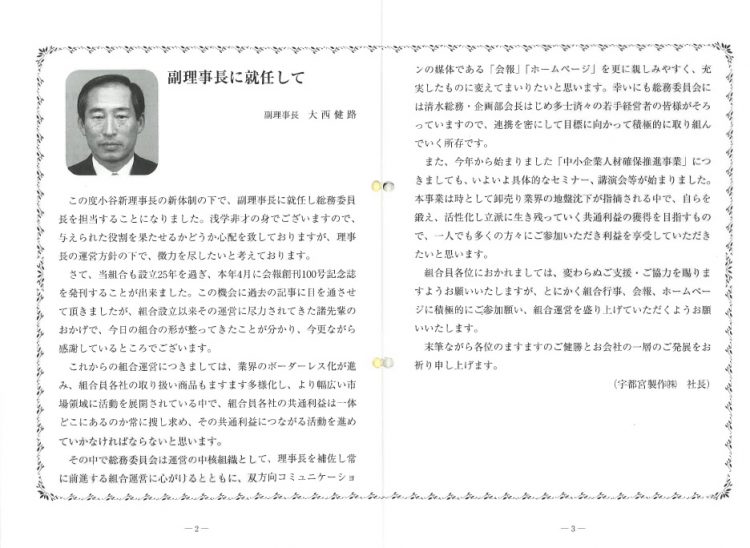 副理事長に就任して
副理事長　大西健路
この度小谷新理事長の新体制の下で、副理事長に就任し総務委員
長を担当することになりました。浅学非才の身でございますので、
与えられた役割を果たせるかどうか心配を致しておりますが、理事
長の運営方針の下で、微力を尽したいと考えております。
さて、当組合も設立25年を過ぎ、本年4月に会報創刊100号記念誌
を発刊することが出来ました。この機会に過去の記事に目を通させ
て頂きましたが、組合設立以来その運営に尽力されてきた諸先輩の
おかげで、今日の組合の形が整ってきたことが分かり、今更ながら
感謝しているところでございます。
これからの組合運営につきましては、業界のボーダーレス化が進
み、組合員各社の取り扱い商品もますます多様化し、より幅広い市
場領域に活動を展開されている中で、組合員各社の共通利益は一体
どこにあるのか常に捜し求め、その共通利益につながる活動を進め
ていかなければならないと思います。
その中で総務委員会は運営の中核組織として、理事長を補佐し常
に前進する組合運営に心がけるとともに、双方向コミュニケーショ
—2—
ンの媒体である「会報」「ホームページ」を更に親しみやすく、充
実したものに変えてまいりたいと思います。幸いにも総務委員会に
は清水総務・企画部会長はじめ多士済々の若手経営者の皆様がそろ
っていますので、連携を密にして目標に向かって積極的に取り組ん
でいく所存です。
また、今年から始まりました「中小企業人材確保推進事業」につ
きましても、いよいよ具体的なセミナー、講演会等が始まりました。
本事業は時として卸売り業界の地盤沈下が指摘される中で、自らを
鍛え、活性化し立派に生き残っていく共通利益の獲得を目指すもの
で、一人でも多くの方々にご参加いただき利益を享受していただき
たいと思います。
組合員各位におかれましては、変わらぬご支援・ご協力を賜りま
すようお願いいたしますが、とにかく組合行事、会報、ホームペー
ジに積極的にご参加願い、組合運営を盛り上げていただくようお願
いいたします。
末筆ながら各位のますますのご健勝とお会社の一層のご発展をお
祈り申し上げます。
（宇都宮製作㈱　社長）
—3—